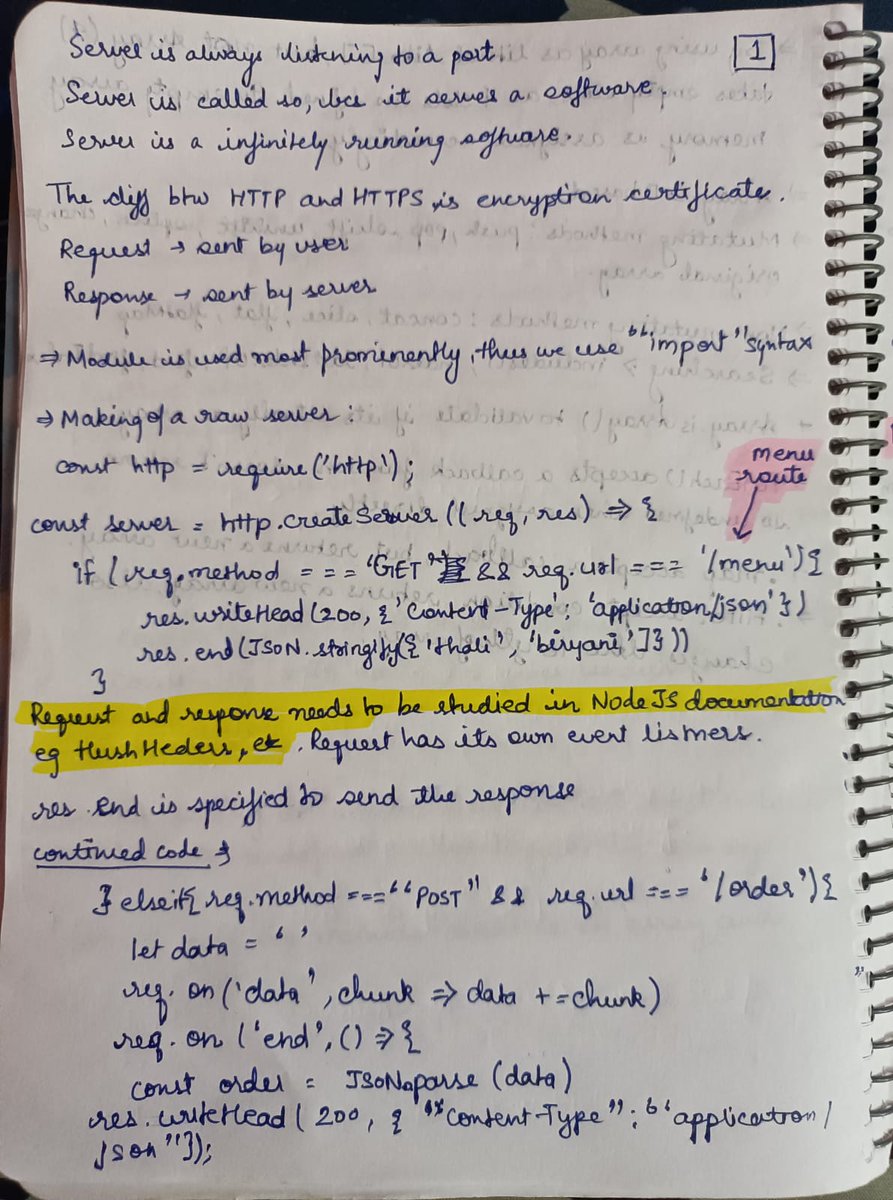 1
Server is always listening to a port.
Server is called so, bcs it serves a software.
Server is a infinitely running software.
The diff btw HTTP and HTTPS is encryption certificate.
Request → sent by user
Response → sent by server
⇒ Module is used most prominently, thus we use "import" syntax
⇒ Making of a raw server:
const http = require('http');
menu
route
const server = http.createServer((req, res) => {
if (req.method === 'GET' && req.url === '/menu'){
res.writeHead(200, {'Content-Type': 'application/json'})
res.end(JSON.stringify({'thali', 'biryani']}))
}
Request and response needs to be studied in NodeJS documentation
eg flushHeders, etc. Request has its own event listners.
res.end is specified to send the response
continued code
} elseif{ req.method === "POST" && req.url === '/order'){
let data = ' '
req.on('data', chunk => data += chunk)
req.on('end', () => {
const order = JSON.parse(data)
res.writeHead(200, { "Content-Type": "application/
json"});